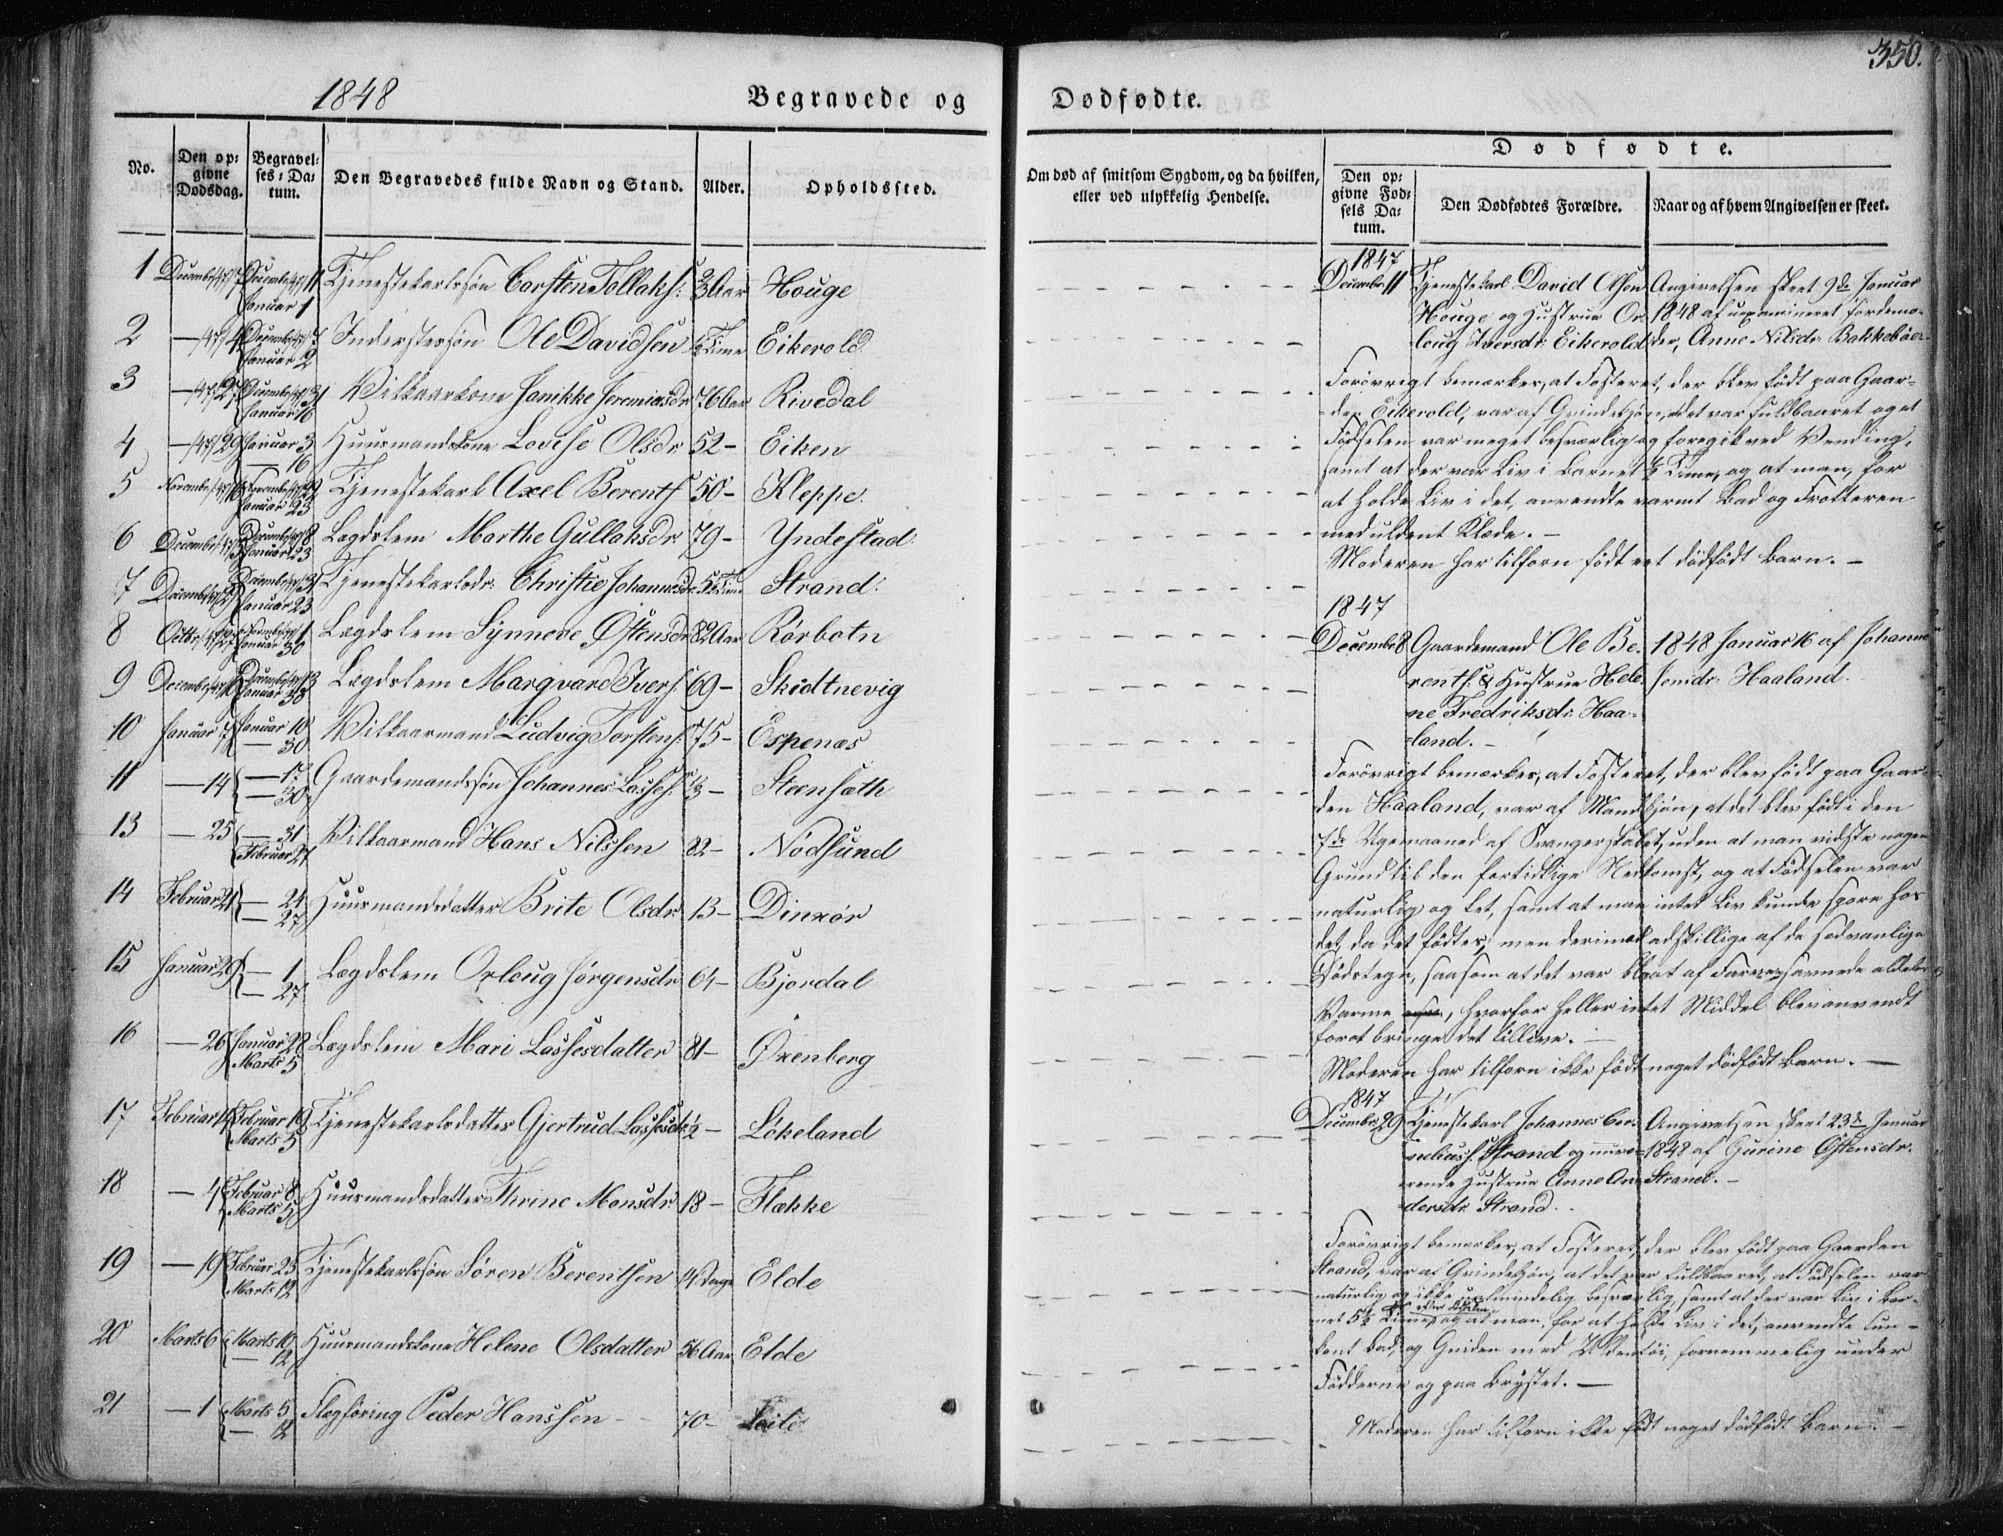 350.
1848
Begravede og Dødfødte.
No.
Den opgivne Dødsdag.
Begravelses-Datum.
Den Begravedes fulde Navn og Stand.
Alder.
Opholdssted.
Om død af smitsom Sygdom, og da hvilken, eller ved ulykkelig Hendelse.
Dødfødte.
Den opgivne Fødsels Datum.
Den Dødfødtes Forældre.
Naar og af hvem Angivelsen er skeet.
1 Decembr Decembr 11 Januar 1 Tjenestekarlssøn Carsten Tollaks: Aar Houge
2 Januar 2 Inderstersøn Ole Davidsen ½ Time Eikerold
3 27 Decembr 31 Januar 16 Vilkaarkone Janikke Jeremiasdr 76 Aar Rivedal
4 29 Januar 3 — 16 Huusmandskone Lovise Olsdr. 52 - Eiken
5 Novembr Januar 23 Tjenestekarl Axel Berents 50 - Kleppe
6 Decembr Januar 23 Lægdslem Marthe Gullaksdr 79 - Yndestad
7 Decembr Decembr 31 Januar 23 Tjenestekarlsdr. Christie Johannesdr. 5½ Time Strand
8 Octbr. 27 Januar 30 Lægdslem Synneve Østensdr. 82 Aar Rørbotn
9 Decembr Januar 30 Lægdslem Margvard Ivers: 69 - Skidtnevig
10 Januar 7 Januar 10 — 30 Vilkaarmand Ludvig Torstens: 75 - Espenæs
11 — 14 — 17 — 30 Gaardemandssøn Johannes Lasses: Steensæth
13 — 25 — 31 Februar 27 Vilkaarmand Hans Nilssen 82 - Nødsund
14 Februar 21 — 24 — 27 Huusmandsdatter Brite Olsdr. 13 - Dinxør
15 Januar 29 — 1 — 27 Lægdslem Orloug Jørgensdr. 64 - Bjordal
16 — 26 Januar 28 Marts 5 Lægdslem Mari Lassesdatter 81 - Oxenberg
17 Februar 14 Februar 19 Marts 5 Tjenestekarlsdatter Gjertrud Lassesdr. ½ - Løkeland
18 — 4 Februar 8 Marts 5 Huusmandsdatter Thrine Monsdr. 18 - Flække
19 — 19 Februar 25 Marts 12 Tjenestekarlssøn Søren Berentsen 14 Dage Elde
20 Marts 6 Marts 10 — 12 Huusmandskone Helene Olsdatter 56 Aar Elde
21 — 1 Marts 5 — 12 Flægføring Peder Hanssen 70 -
1847
Decembr 11 Tjenestekarl David Olsen Angivelsen skeet 9de Januar
Houge og Hustrue Or- 1848 af uexamineret Jordemo-
loug Iversdr. Eikerold der, Anne Nilsdr. Bakkebøe.
Forøvrigt bemærkes, at Fosteret, der blev født paa Gaar-
den Eikerold, var af Qvindekjøn, det var fuldbaaret og at
Fødselen var meget besværlig og foregik ved Vending,
samt at der var Liv i Barnet ½ Time, og at man, for
at holde Liv i det, anvendte varmt Bad og Frotteren
med uldent Klæde. -
Moderen har tilforn født eet dødfødt Barn. -
1847
Decembr 8 Gaardemand Ole Be- 1848 Januar 16 af Johanne
rents: & Hustrue Hele- Jensdr. Haaland.
ne Fredriksdr. Haa-
land. -
Forøvrigt bemærkes, at Fosteret, der blev født paa Gaar-
den Haaland, var af Mandkjøn, at det blev født i den
7de Ugemaaned af Svangerskabet, uden at man vidste nogen
Grund til den fortidlige Nedkomst, og at Fødselen var
naturlig og let, samt at man intet Liv kunde spore hos
det, da det fødtes, men derimod adskillige af de sædvanlige
Dødstegn, saasom at det var blaat af Farve, savnede aldeles
Varme, hvorfor heller intet Middel blev anvendt
forat bringe det tillive. -
Moderen har tilforn ikke født noget dødfødt Barn. -
1847
Decembr 29 Tjenestekarl Johannes Cor- Angivelsen skeet 23de Januar
neliuss. Strand og nuvæ- 1848 af Gurine Østensdr.
rende Hustrue Anne An- Strand. -
dersdr. Strand.
Forøvrigt bemærkes, at Fosteret, der blev født paa Gaarden
Strand, var af Qvindekjøn, at det var fuldbaaret, at Fødselen var
naturlig og ikke ualmindelig besværlig, samt at der var Liv i Bar-
net 5½ Time efter Fødselen, og at man, for at holde Liv i det, anvendte lun-
kent Bad, og Gniden med Uldentøi, fornemmelig under
Fødderne og paa Brystet. -
Moderen har tilforn ikke født noget dødfødt Barn. -